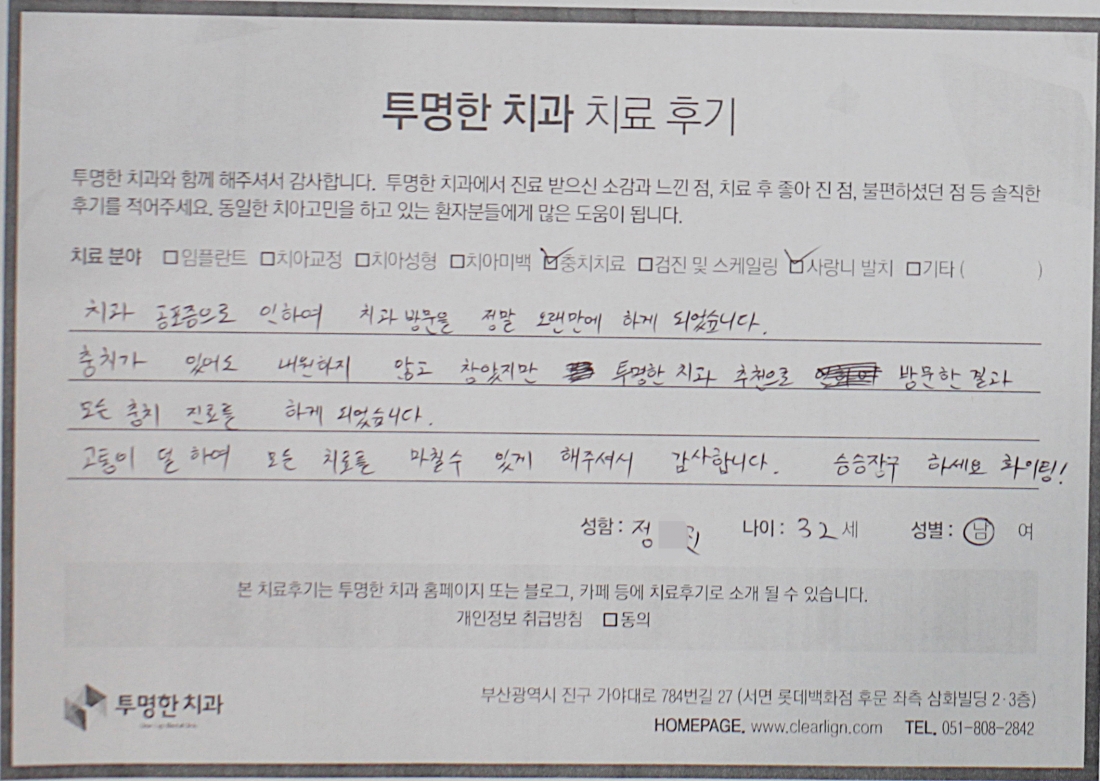 투명한 치과 치료 후기
투명한 치과와 함께 해주셔서 감사합니다. 투명한 치과에서 진료 받으신 소감과 느낀 점, 치료 후 좋아 진 점, 불편하셨던 점 등 솔직한
후기를 적어주세요. 동일한 치아고민을 하고 있는 환자분들에게 많은 도움이 됩니다.
치료 분야 □임플란트 □치아교정 □치아성형 □치아미백 ☑충치치료 □검진 및 스케일링 ☑사랑니 발치 □기타 ( )
치과 공포증으로 인하여 치과 방문을 정말 오랜만에 하게 되었습니다.
충치가 있어도 내원하지 않고 참았지만 투명한 치과 추천으로 방문한 결과
모든 충치 진료를 하게 되었습니다.
고통이 덜 하여 모든 치료를 마칠수 있게 해주셔서 감사합니다. 승승장구 하세요 화이팅!
성함 : 정 나이 : 32 세 성별 : 남 여
본 치료후기는 투명한 치과 홈페이지 또는 블로그, 카페 등에 치료후기로 소개 될 수 있습니다.
개인정보 취급방침 □동의
투명한 치과
부산광역시 진구 가야대로 784번길 27 (서면 롯데백화점 후문 좌측 삼화빌딩 2·3층)
HOMEPAGE. www.clearlign.com TEL. 051-808-2842